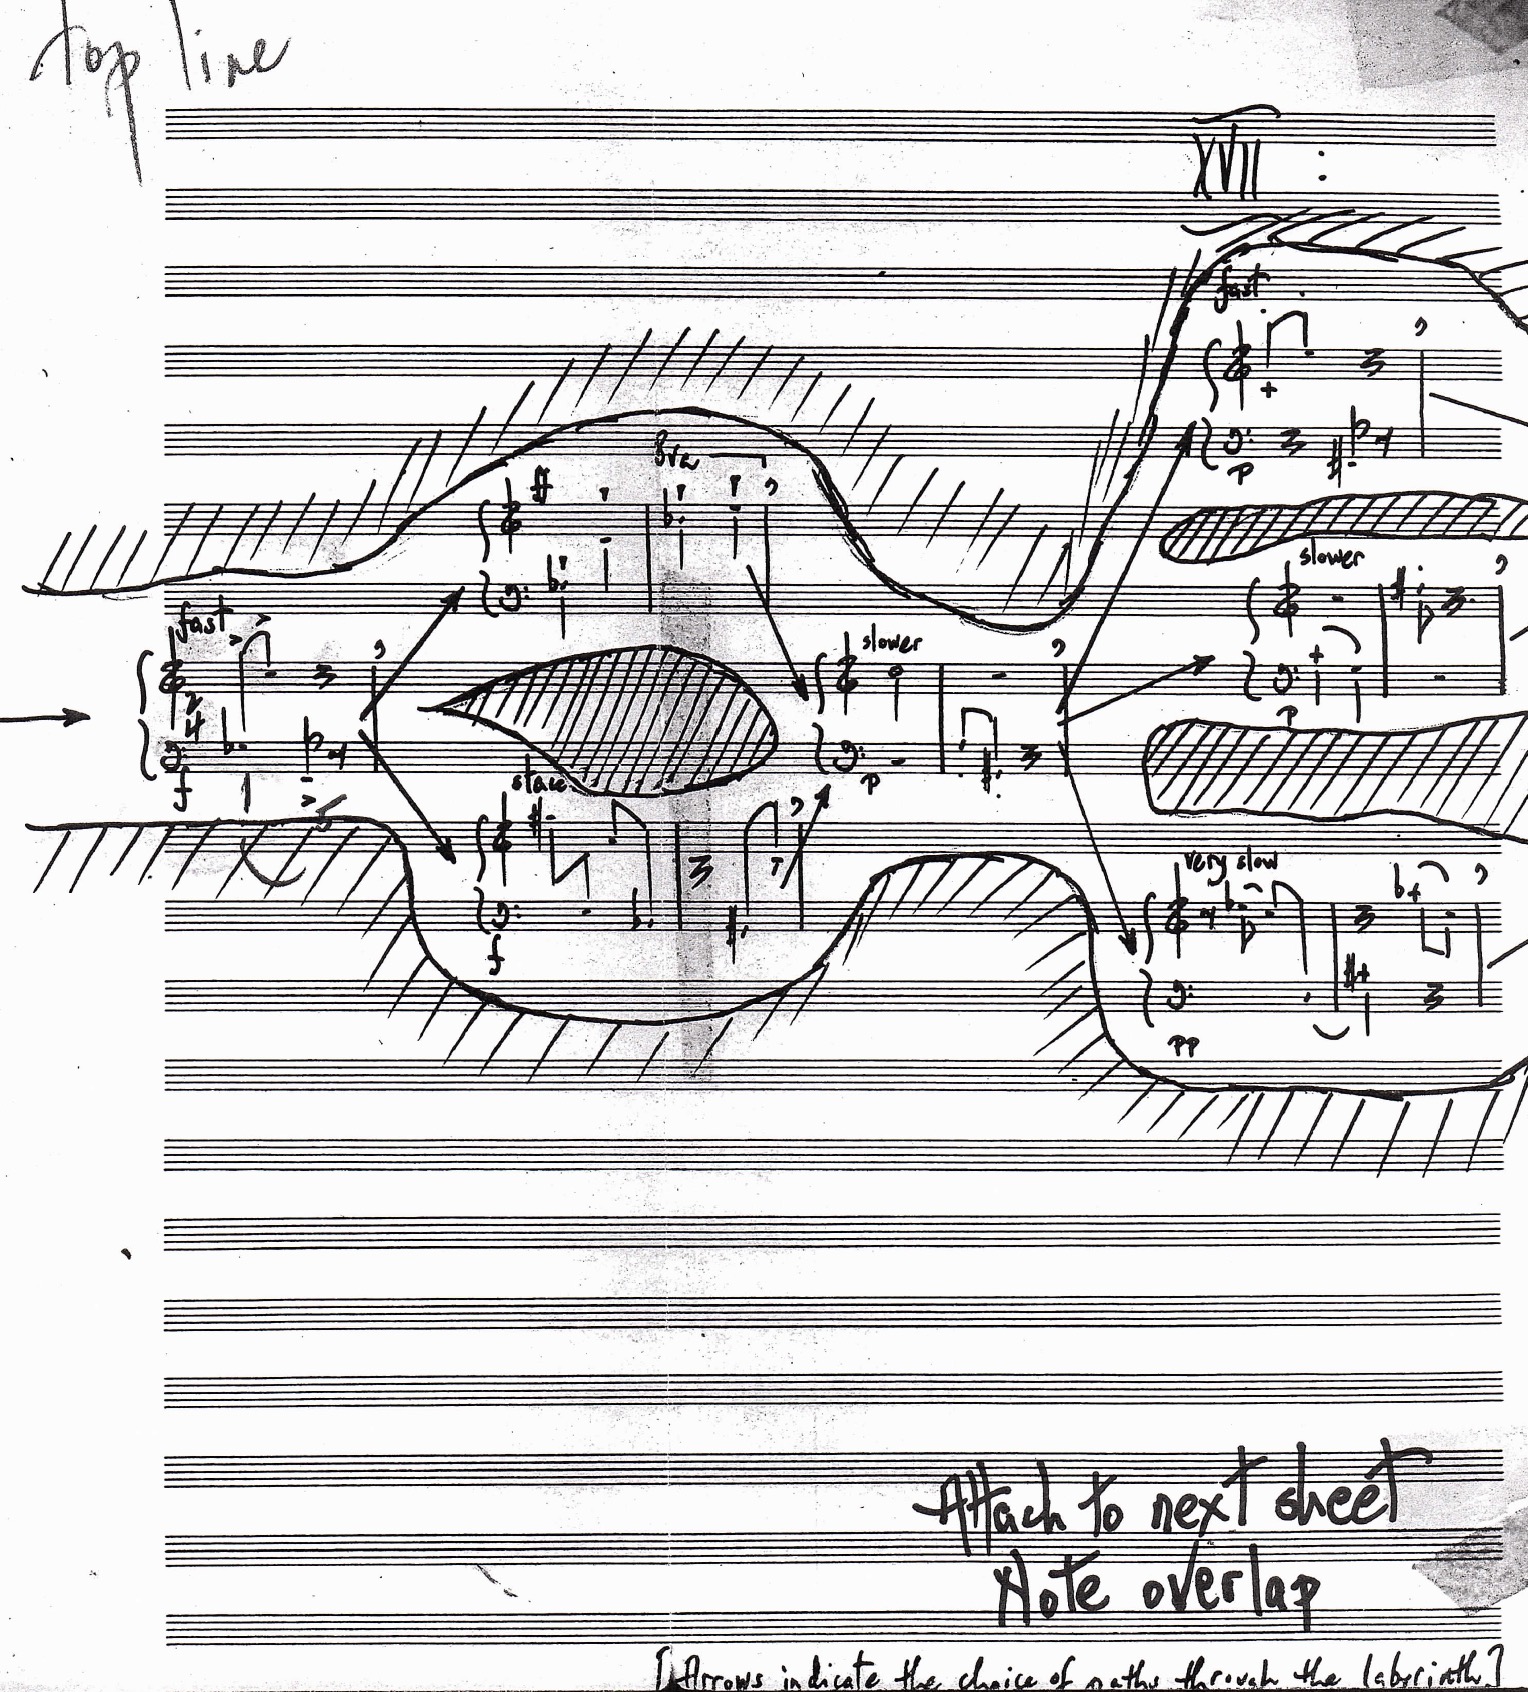 top line
XVII :
fast
8va
ff
slower
fast
p
slower
2
4
f
p
p
stacc
very slow
f
pp
Attach to next sheet
Note overlap
[Arrows indicate the choice of paths through the labyrinth]